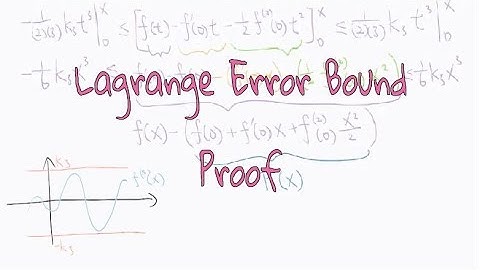 -1/(2)(3) k₃ t³ |₀ˣ ≤ [f(t) - f'(0)t - 1/2 f⁽²⁾(0) t²]₀ˣ ≤ 1/(2)(3) k₃ t³ |₀ˣ
-1/6 k₃ x³ ≤ 1/6 k₃ x³
Lagrange Error Bound
f(x) - (f(0) + f'(0) x + f⁽²⁾(0) x²/2)
Proof
(x)
k₃
f⁽³⁾(x)
-k₃